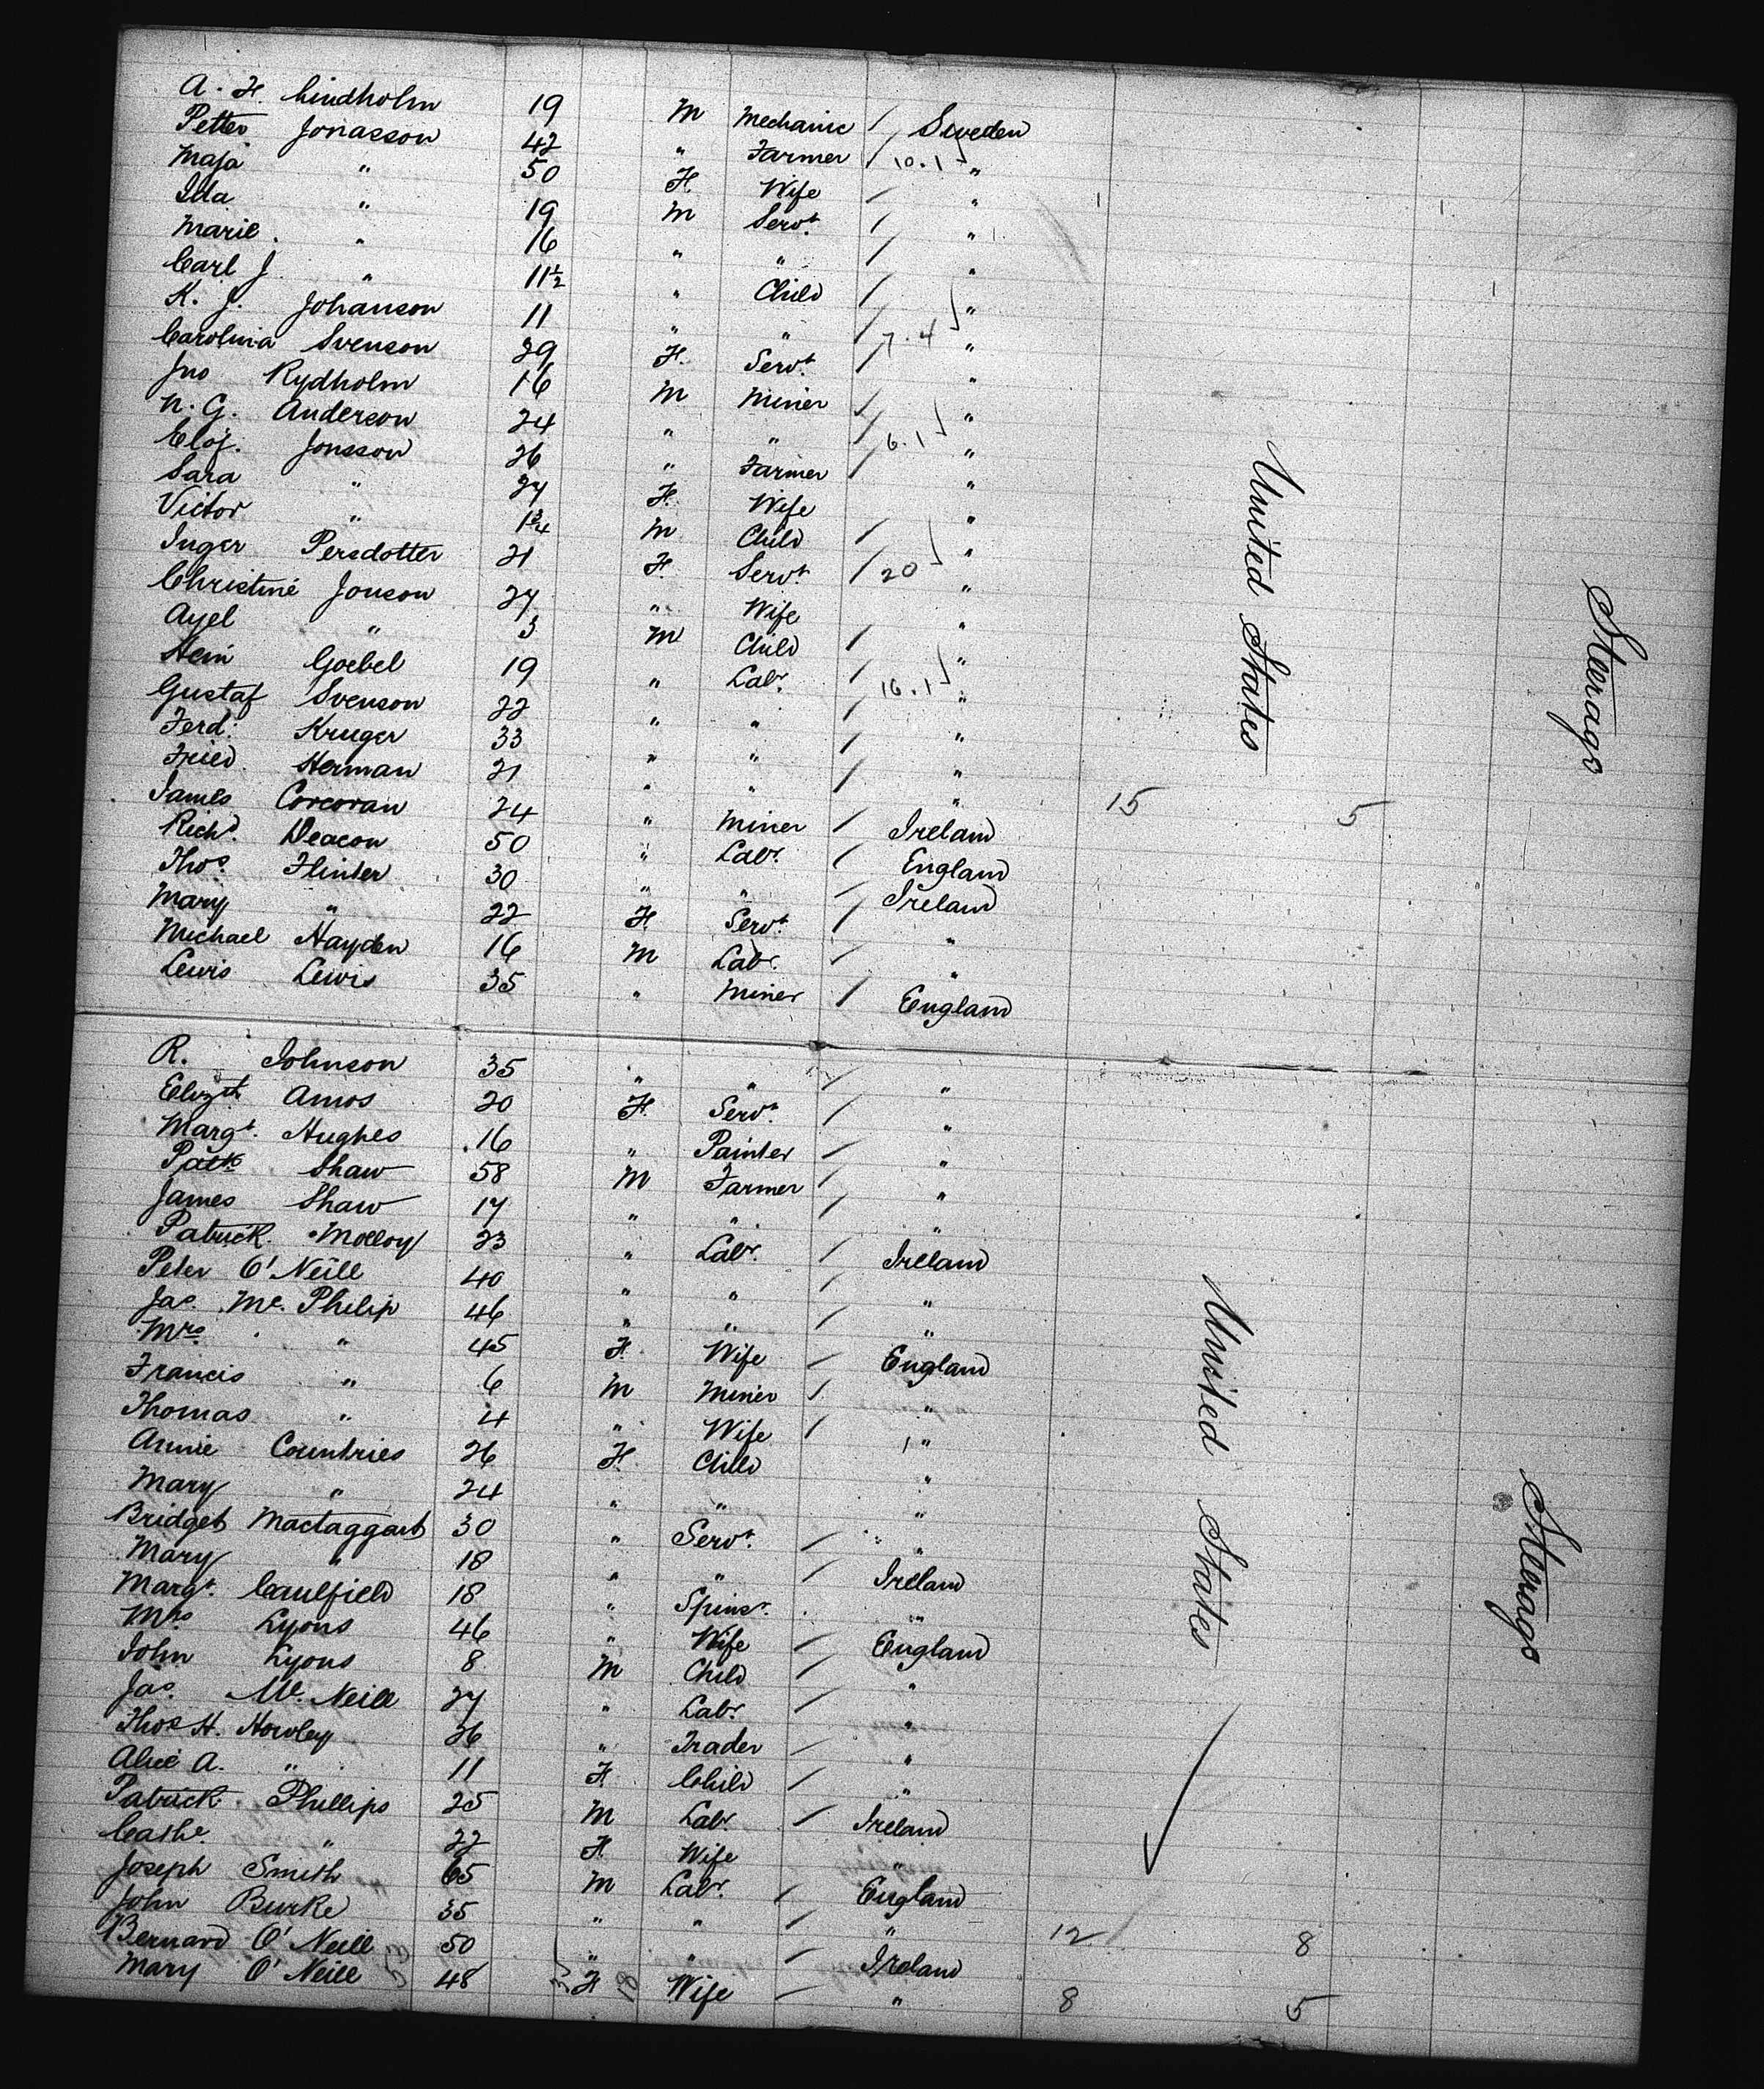 A. H. Lindholm 19 M Mechanic / Sweden
Petter Jonasson 42 " Farmer / 10.1 "
Maja " 50 F. Wife / "
Ida " 19 M Servt. / "
Marie. " 16 " " / "
Carl J " 11½ " Child / "
K. J. Johanson 11 " " / 7.4 "
Carolina Svenson 29 F. Servt. / "
Jno Rydholm 16 M Miner / "
N. G. Anderson 24 " " / 6.1 "
Elof. Jonsson 26 " Farmer / "
Sara " 27 F. Wife "
Victor " 1¾ M Child / "
Inger Persdotter 21 F. Servt. / 20 "
Christine Jonson 27 " Wife "
Axel " 3 M Child / "
Hein Goebel 19 " Labr. / 16.1 "
Gustaf Svenson 22 " " / "
Ferd. Kruger 33 " " / "
Fried. Herman 21 " " / "
James Corcoran 24 " Miner / Ireland 15 5
Richd. Deacon 50 " Labr. / England
Thos. Flinter 30 " " / Ireland
Mary " 22 F. Servt. / "
Michael Hayden 16 M Labr. / "
Lewis Lewis 35 " Miner / England
United States
Steerage
R. Johnson 35 " " / "
Elizth Amos 20 F. Servt. / "
Margt. Hughes 16 " Painter / "
Patk Shaw 58 M Farmer / "
James Shaw 17 " " / "
Patrick Molloy 23 " Labr. / Ireland
Peter O'Neill 40 " " / "
Jas. Mc. Philip 46 " " / "
Mrs. " 45 F. Wife / England
Francis " 6 M Miner / "
Thomas " 4 " Wife / "
Annie Countries 26 F. Child "
Mary " 24 " " "
Bridget Mactaggart 30 " Servt. / "
Mary " 18 " " / Ireland
Margt. Caulfield 18 " Spinsr. "
Mrs Lyons 46 " Wife / England
John Lyons 8 M Child / "
Jas. Mc. Neill 27 " Labr. / "
Thos H. Howley 26 " Trader / "
Alice A. " 11 F. Child / "
Patrick Phillips 25 M Labr. / Ireland
Cathe. " 22 F. Wife "
Joseph Smith 65 M Labr. / England
John Burke 35 " " / " 12 8
Bernard O'Neill 50 " " / Ireland
Mary O'Neill 48 F Wife / " 8 5
United States
Steerage